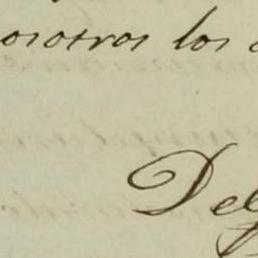 osotros los
Del